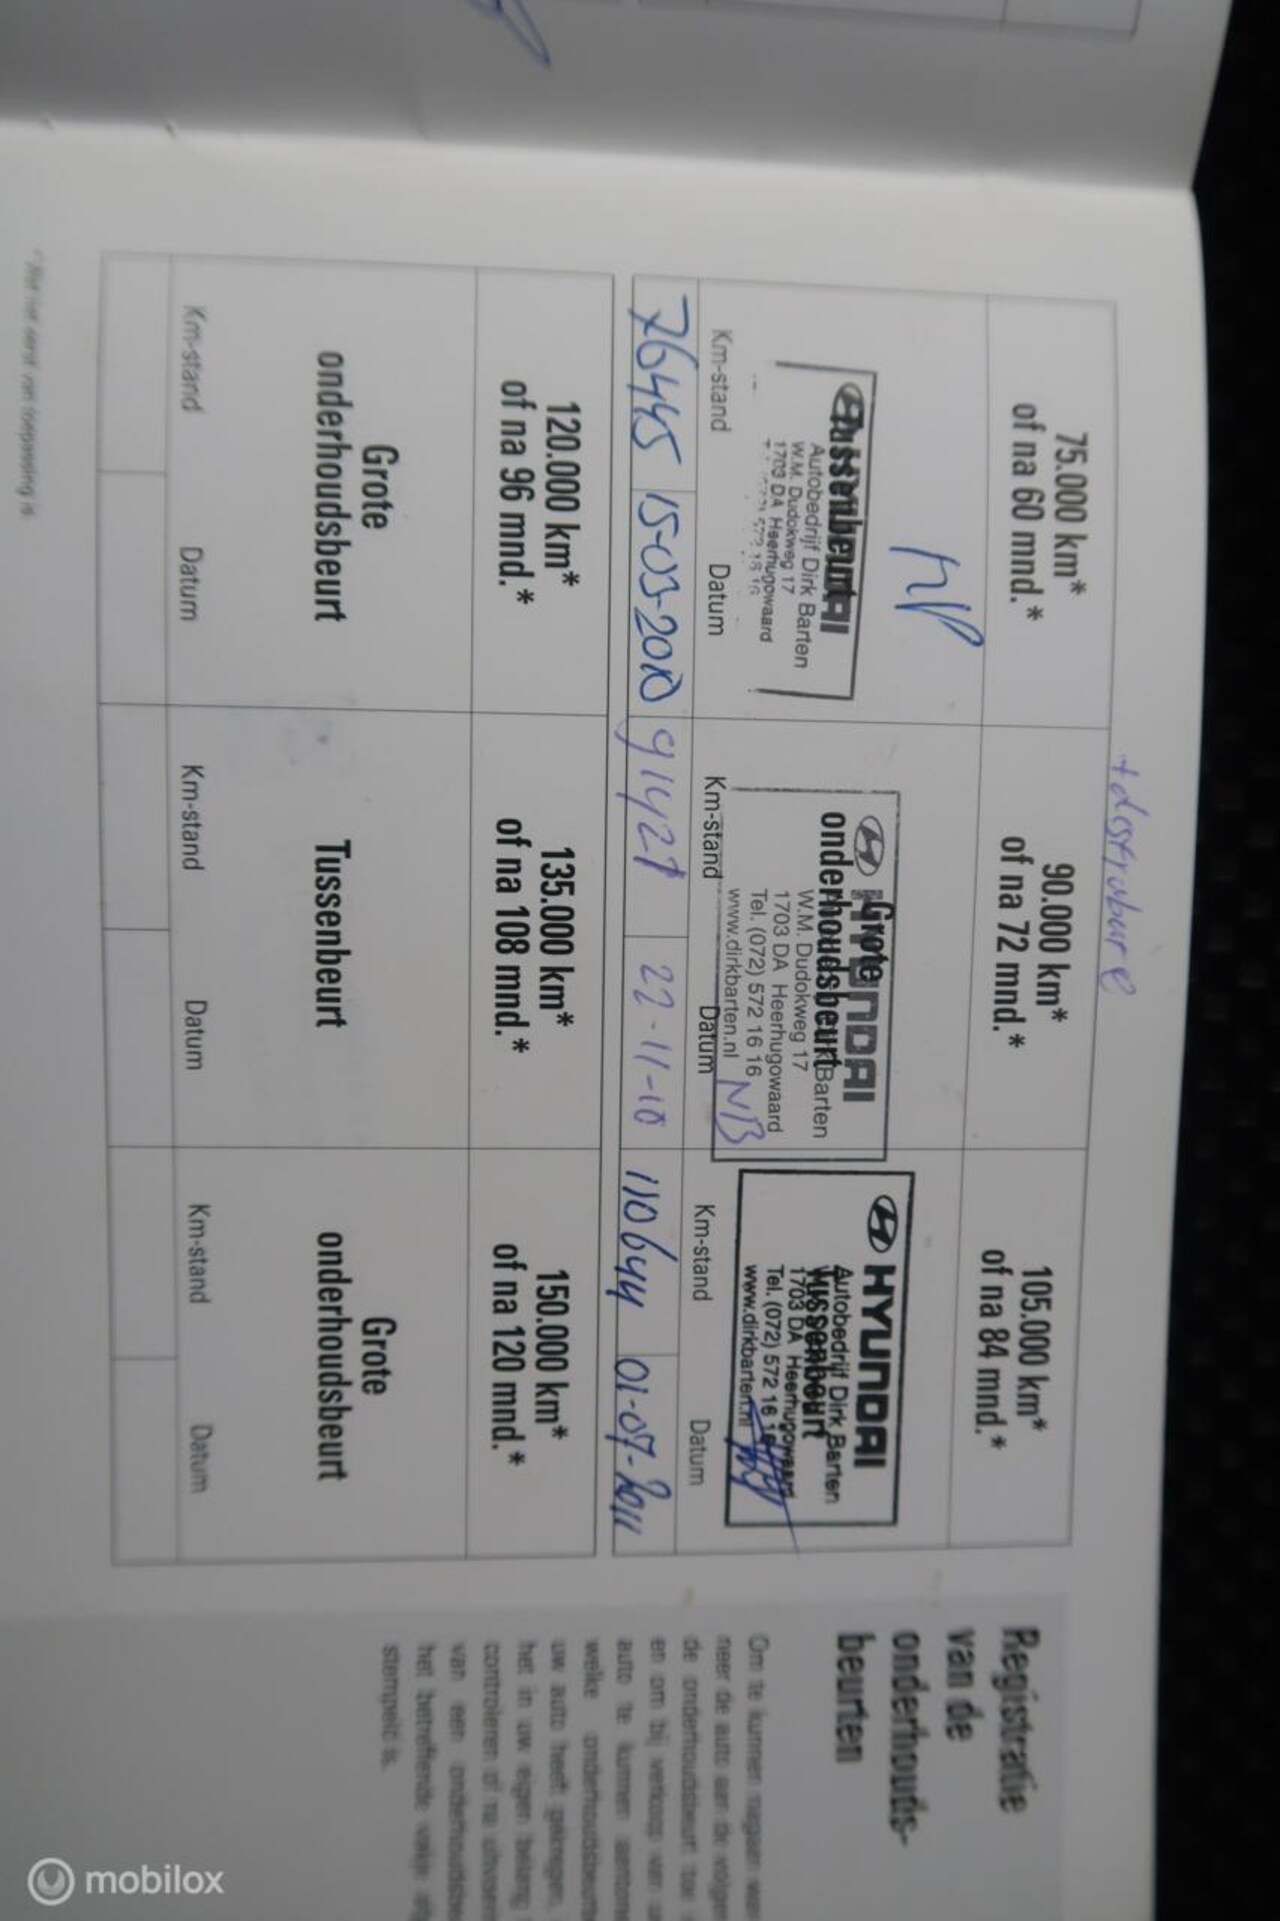 + distrubure
75.000 km*
of na 60 mnd.*
Tussenbeurt
Autobedrijf Dirk Barten
W.M. Dudokweg 17
1703 DA Heerhugowaard
Km-stand Datum
76445 15-03-2010
90.000 km*
of na 72 mnd.*
HYUNDAI
Grote
onderhoudsbeurt
Barten
W.M. Dudokweg 17
1703 DA Heerhugowaard
Tel. (072) 572 16 16
www.dirkbarten.nl
NB
Km-stand Datum
91427 22-11-10
105.000 km*
of na 84 mnd.*
HYUNDAI
Tussenbeurt
Autobedrijf Dirk Barten
1703 DA Heerhugowaard
Tel. (072) 572 16
www.dirkbarten.nl
Km-stand Datum
110644 01-07-2011
120.000 km*
of na 96 mnd.*
Grote
onderhoudsbeurt
Km-stand Datum
135.000 km*
of na 108 mnd.*
Tussenbeurt
Km-stand Datum
150.000 km*
of na 120 mnd.*
Grote
onderhoudsbeurt
Km-stand Datum
Registratie
van de
onderhouds-
beurten
Om te kunnen nagaan
neer de auto aan de
de onderhoudsbeurt toe
en om bij verkoop van
auto te kunnen
welke
uw auto heeft gekregen,
het in uw eigen belang
controleren of na
van een
het betreffende vakje
stempeld is.
mobilox